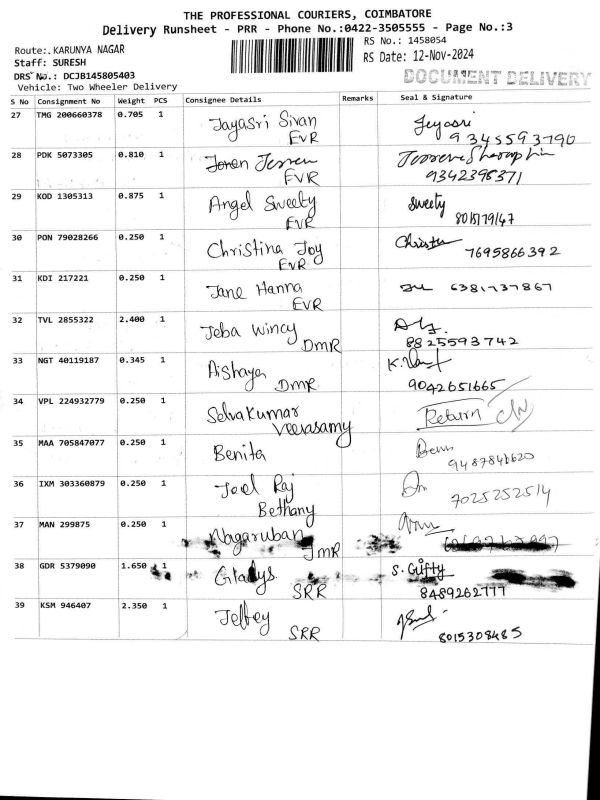 THE PROFESSIONAL COURIERS, COIMBATORE
Delivery Runsheet - PRR - Phone No.:0422-3505555 - Page No.:3
Route: KARUNYA NAGAR
RS No.: 1458054
Staff: SURESH
RS Date: 12-Nov-2024
DRS No.: DCJB145805403
DOCUMENT DELIVERY
Vehicle: Two Wheeler Delivery
S No Consignment No Weight PCS Consignee Details Remarks Seal & Signature
27 TMG 200660378 0.705 1 Jayasri Sivan Jeyasri
EVR 9345593790
28 PDK 5073305 0.810 1 Jerren
EVR 9342398371
29 KOD 1305313 0.875 1 Angel Sweety Sweety
EVR 8015179147
30 PON 79028266 0.250 1 Christina Joy
EVR 7695866392
31 KDI 217221 0.250 1 Jane Hanna 6381737867
EVR
32 TVL 2855322 2.400 1 Jeba Wincy
DMR 8825593742
33 NGT 40119187 0.345 1 Aishaya
DMR 9042651665
34 VPL 224932779 0.250 1 Selvakumar Return
Veerasamy
35 MAA 705847077 0.250 1 Benita
9487846620
36 IXM 303360879 0.250 1 Joel Raj
Bethany 7025252514
37 MAN 299875 0.250 1 Nagaruban
JMR
38 GDR 5379090 1.650 1 Gladys S. Gufty
SRR 8489262777
39 KSM 946407 2.350 1 Jeffrey
SRR 8015308485